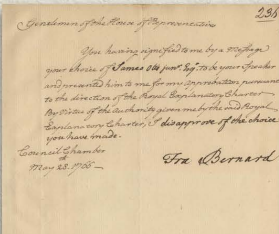 236
Gentlemen of the House of Representatives
You having signified to me by a Message
your choice of James Otis junr. Esqr. to be your Speaker
and presented him to me for my approbation pursuant
to the direction of the Royal Explanatory Charter
By Virtue of the Authority given me by the said Royal
Explanatory Charter, I disapprove of the choice
you have made.
Fra Bernard
Council Chamber
May 28. 1766